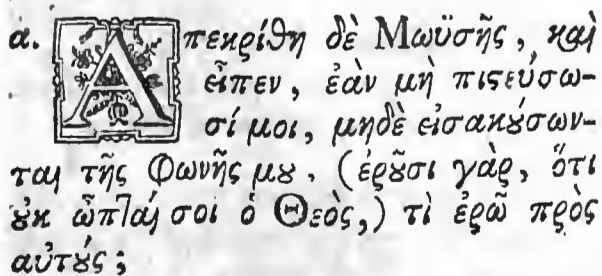 α. Ἀπεκρίθη δὲ Μωϋσῆς, καὶ
εἶπεν, ἐὰν μὴ πιστεύσω-
σί μοι, μηδὲ εἰσακούσων-
ται τῆς φωνῆς μου, (ἐροῦσι γὰρ, ὅτι
οὐκ ὦπταί σοι ὁ Θεὸς,) τὶ ἐρῶ πρὸς
αὐτούς;